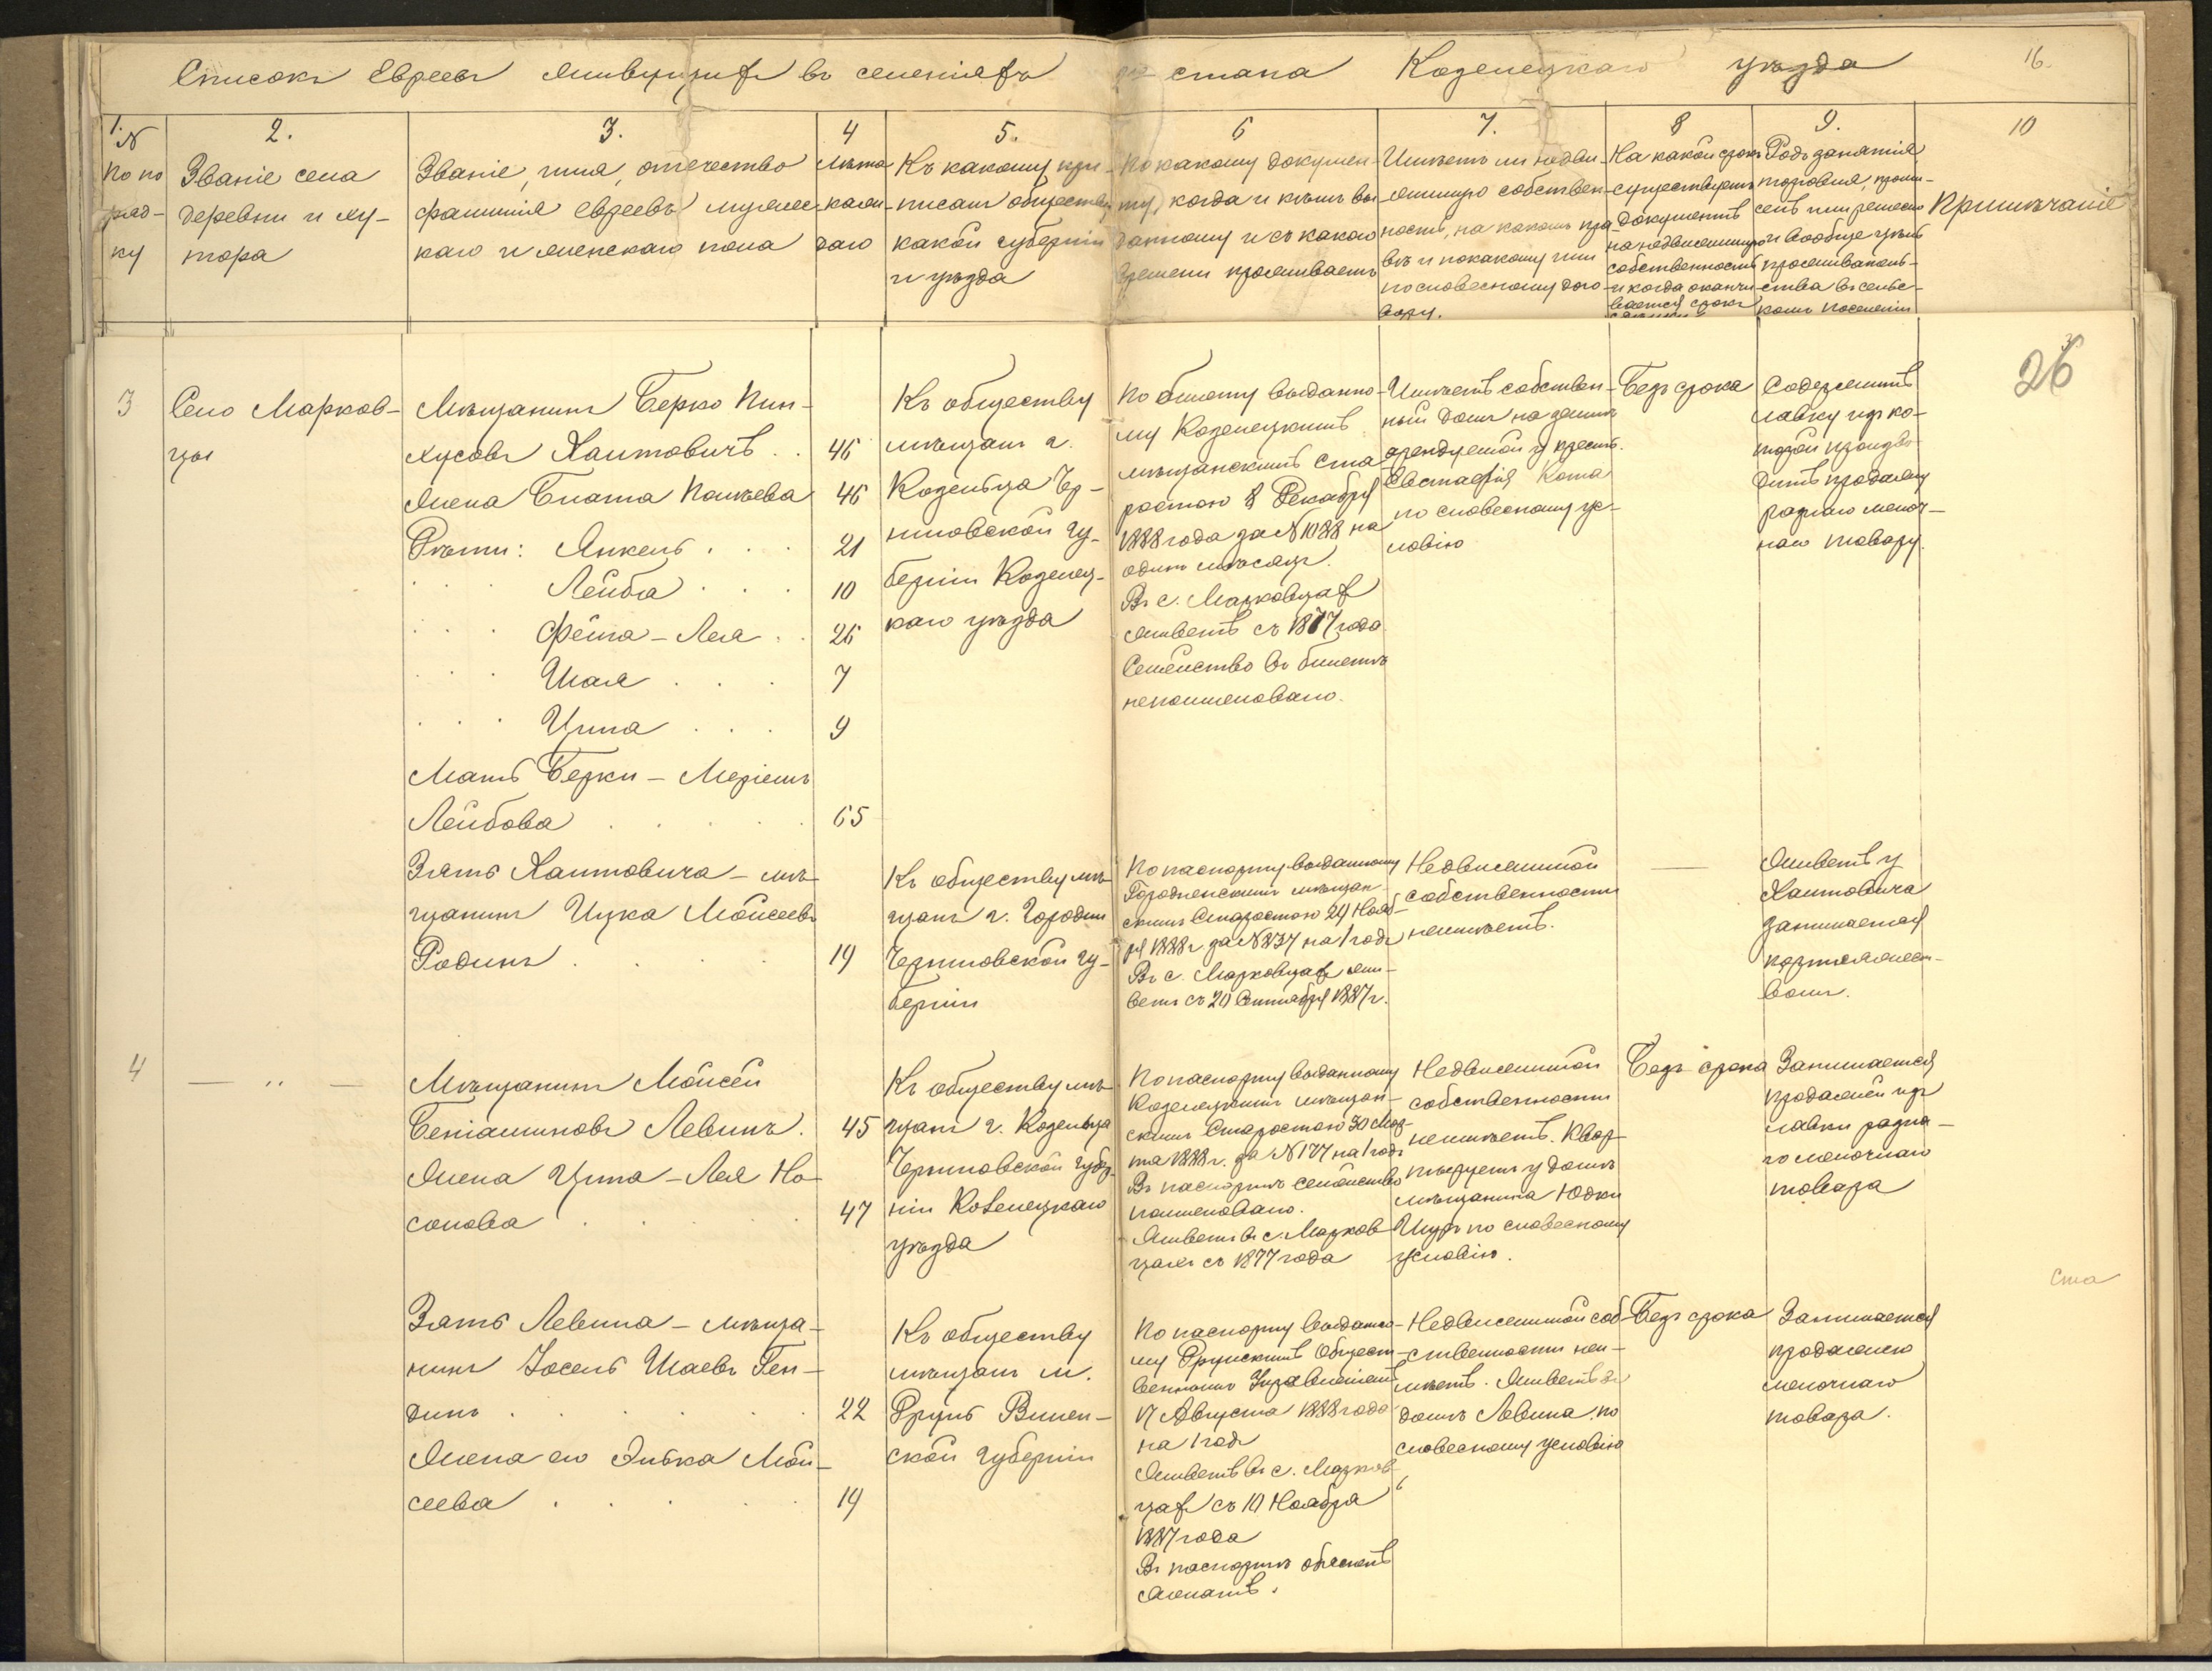 Списокъ Евреевъ живущихъ въ селеніяхъ стана Козелецкаго уѣзда
16.
1.
№
По по
ряд-
ку
2.
Званіе села
деревни и ху-
тора
3.
Званіе, имя, отчество
фамилія евреевъ мужес
каго и женскаго пола
4
Лѣта
каж-
даго
5.
Къ какому при-
писанъ обществу
какой губерніи
и уѣзда
6
По какому докумен-
ту, когда и кѣмъ вы-
данному и съ какого
времени проживаетъ
7.
Имѣетъ ли недви-
жимую собствен-
ность, на какомъ пра-
вѣ и по какому или
по словесному дого-
вору.
8
На какой срокъ
существуетъ
документъ
на недвижимую
собственность
и когда оканчи-
вается срокъ
9.
Родъ занятія
торговля, промы-
селъ или ремесло
и вообще цѣль
проживатель-
ства въ сельс-
комъ поселеніи
10
Примѣчаніе
26
3
Село Марков-
цы
Мѣщанинъ Берко Пин-
хусовъ Хаитовичъ . . 46
Жена Бната 46
Дѣти: Янкель . . . 21
Лейба . . . 10
Фейга - Лея . . 26
Шая . . . 7
Ципа . . . 9
Мать Берки - Меріемъ
Лейбова . . . . . 65
Къ обществу
мѣщанъ г.
Козельца Чер-
ниговской гу-
берніи Козелец-
каго уѣзда
По билету выданно-
му Козелецкимъ
мѣщанскимъ ста-
ростою 8 Декабря
1888 года за № 1088 на
одинъ мѣсяцъ.
Въ с. Марковцахъ
живетъ съ 1877 года
Семейство въ билетѣ
непоименовано.
Имѣетъ собствен-
ный домъ на землѣ
арендуемой у крест.
Евстафія Кота
по словесному ус-
ловію
Безъ срока
Содержитъ
лавку изъ ко-
торой произво-
дитъ продажу
разнаго мелоч-
наго товару.
Зять Хаитовича - мѣ-
щанинъ Ицка Мойсеевъ
Родинъ . . . . 19
Къ обществу мѣ-
щанъ г. Городни
Черниговской гу-
берніи
По паспорту выданному
Городненскимъ мѣщан-
скимъ Старостою 24 Нояб-
ря 1888 г. за № 837 на 1 годъ
Въ с. Марковцахъ жи-
ветъ съ 20 Сентября 1887 г.
Недвижимой
собственности
неимѣетъ.
—
Живетъ у
Хаитовича
занимается
портняжест-
вомъ.
4
— „ —
Мѣщанинъ Мойсей
Беніаминовъ Левинъ. 45
Жена Ципа - Лея Но-
сонова . . . . . 47
Къ обществу мѣ-
щанъ г. Козельца
Черниговской губер-
ніи Козелецкаго
уѣзда
По паспорту выданному
Козелецкимъ мѣщан-
скимъ Старостою 30 Мар-
та 1888 г. за № 177 на 1 годъ
Въ паспортѣ семейство
поименовано.
Живетъ въ с. Марков-
цахъ съ 1877 года
Недвижимой
собственности
неимѣетъ. Квар-
тируетъ у домѣ
мѣщанина Юдки
по словесному
условію.
Безъ срока
Занимается
продажей изъ
лавки разна-
го мелочнаго
товара
Ста
Зять Левина - мѣща-
нинъ Іосель Шаевъ Ген-
динъ . . . . . . 22
Жена его Элька Мой-
сеева . . . . . 19
Къ обществу
мѣщанъ м.
Друя Вилен-
ской губерніи
По паспорту выданно-
му Друйскимъ Общест-
веннымъ Управленіемъ
17 Августа 1888 года
на 1 годъ
Живетъ въ с. Марков-
цахъ съ 10 Ноября
1887 года
Въ паспортѣ
женатъ.
Недвижимой соб-
ственности неи-
мѣетъ. Живетъ въ
домѣ Левина по
словесному условію
Безъ срока
Занимается
продажею
мелочнаго
товара.